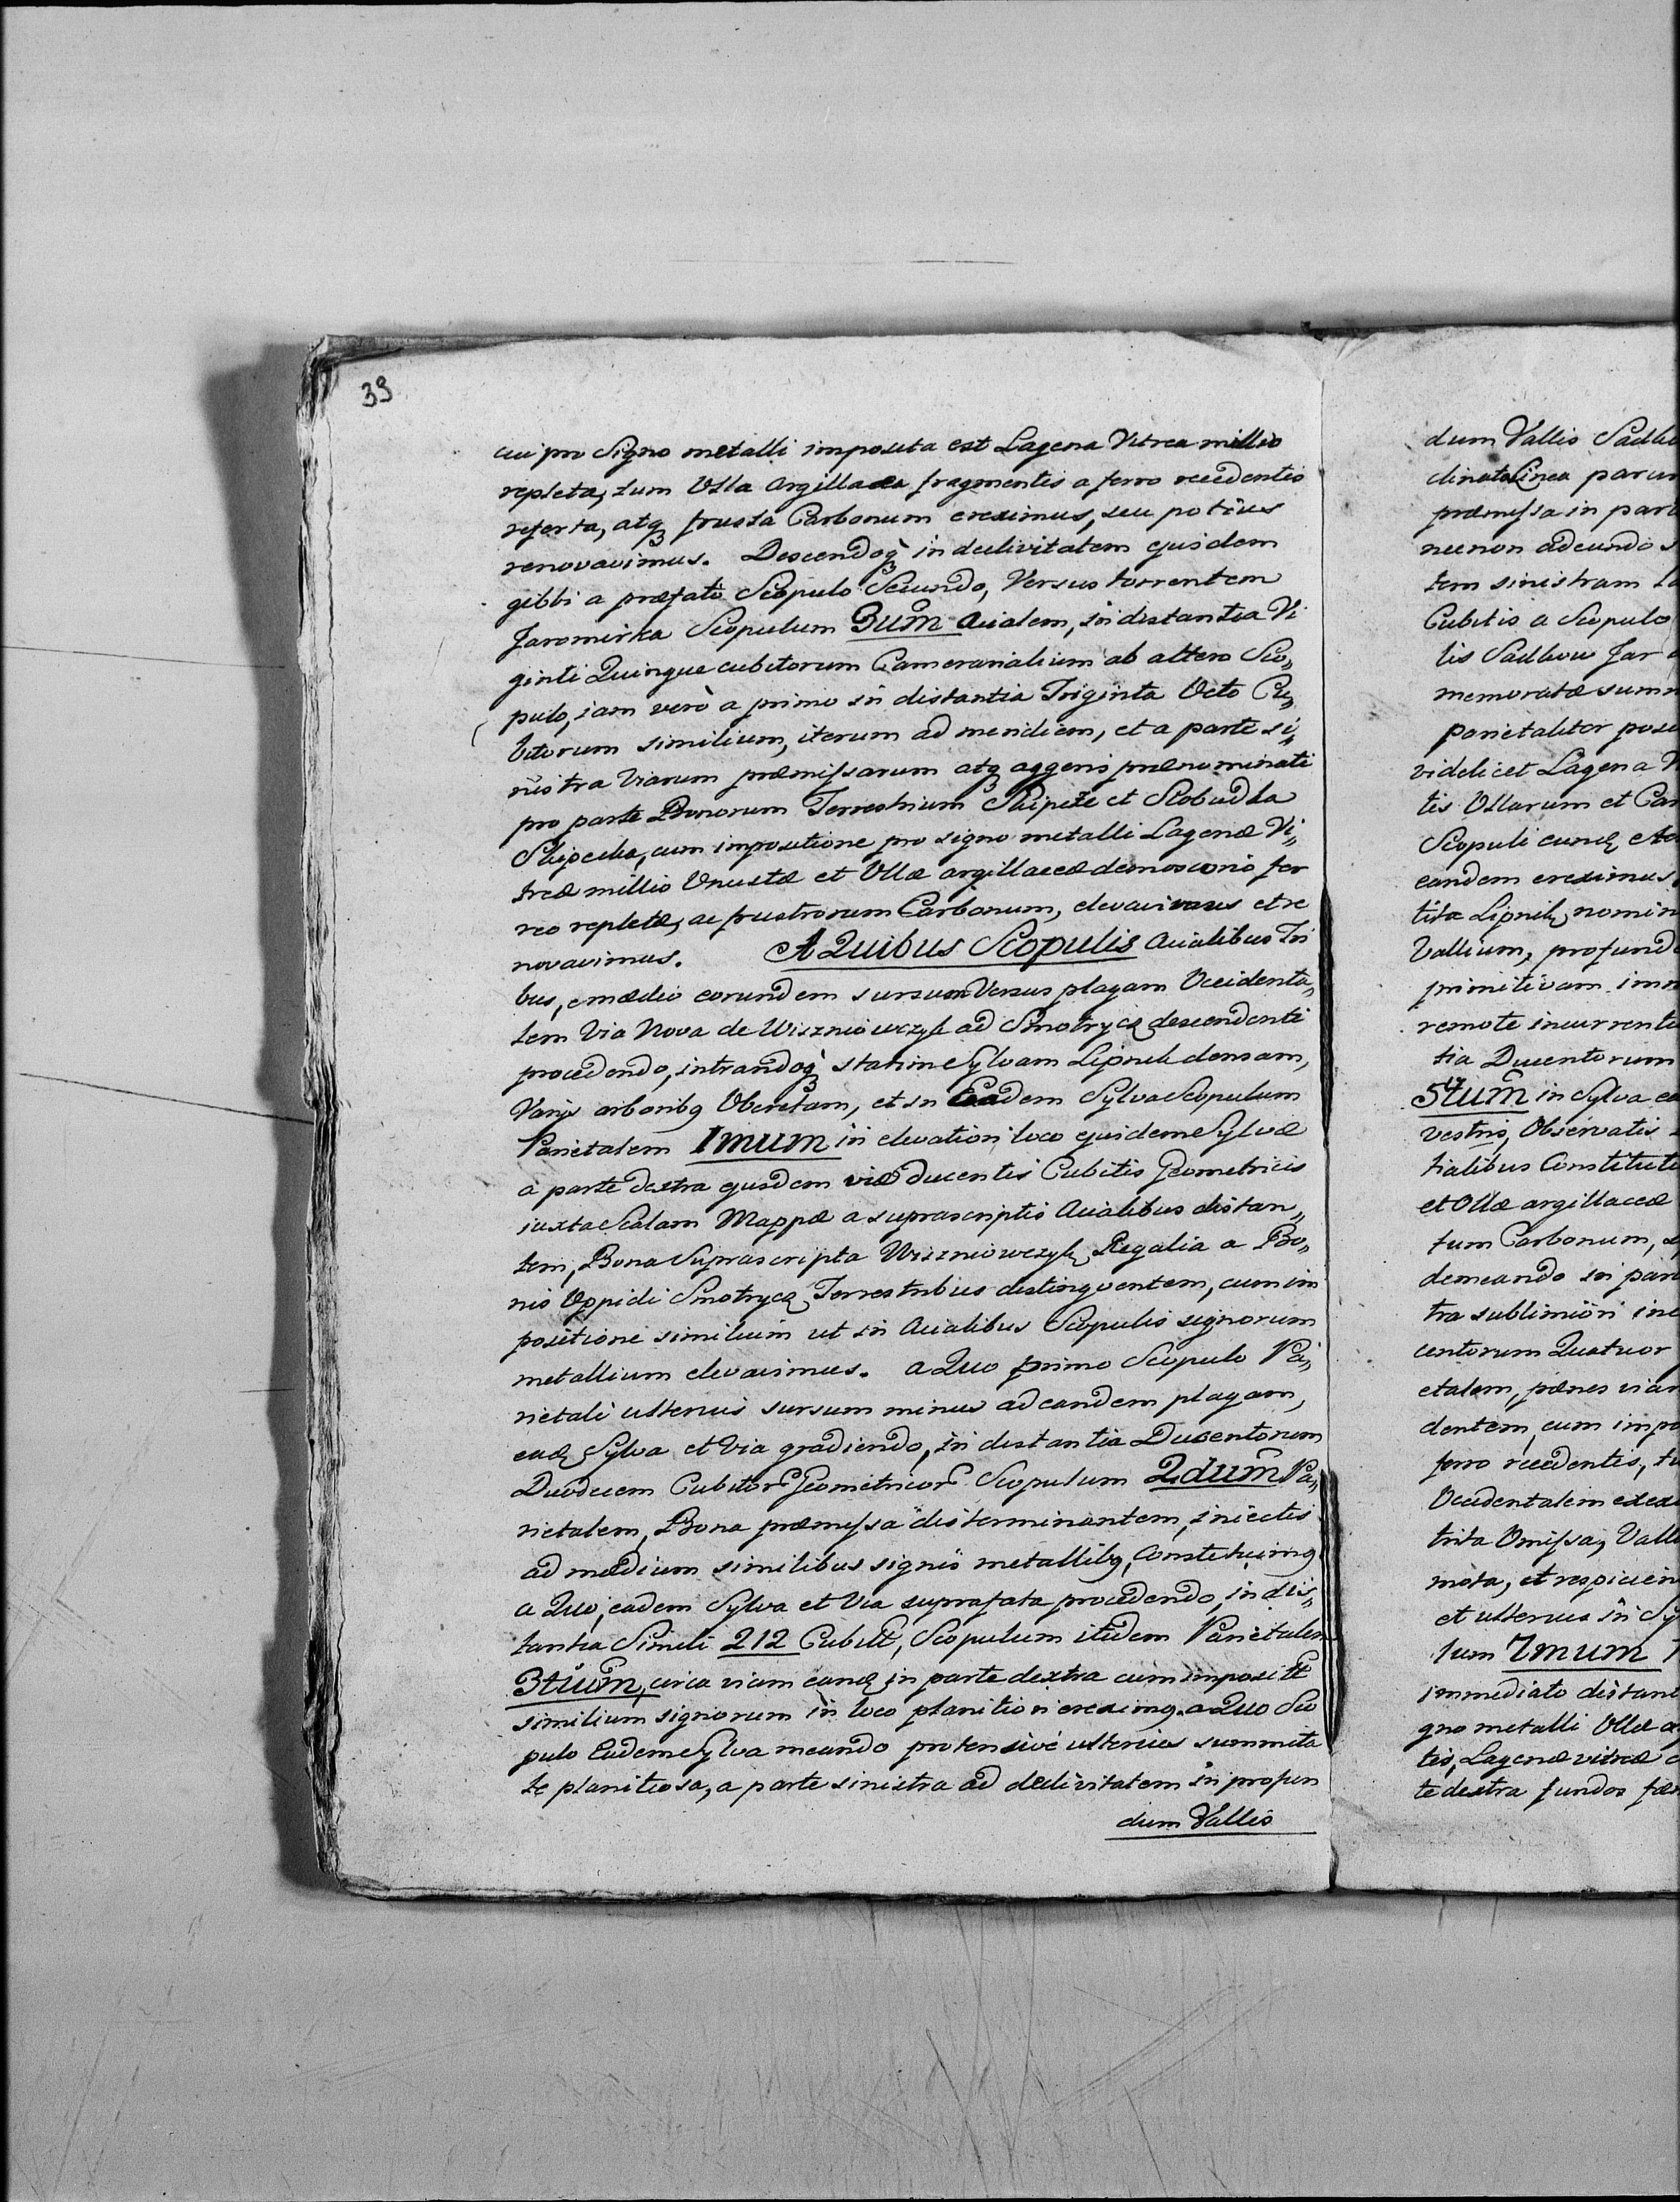 39
cui pro Signo metalli imposita est Lagena Vitrea millio
repleta, tum Olla Argillacea fragmentis a ferro recedentis
referta, atq frusta Carbonum ereximus, seu potius
renovavimus. Descendoq in declivitatem ejusdem
gibbi a præfato Scopulo Secundo, Versus torrentem
Jaromirka Scopulum 3um Acialem, in distantia Vi
ginti Quinque cubitorum Camerarialium ab altero Sco„
pulo, iam verò a primo in distantia Triginta Octo Cu„
bitorum similium, iterum ad meridiem, et a parte si„
nistra Viarum præmissarum atq aggeris prænominati
pro parte Bonorum Terrestrium et
cum impositione pro signo metalli Lagenæ Vi„
treæ millio Onustæ et Ollæ argillaceæ fer
reo repletæ, ac frustrorum Carbonum, elevavimus et re
novavimus. A Quibus Scopulis Acialibus Tri
bus, e medio eorundem sursum Versus plagam Occidenta„
lem Via Nova de Wiszniowczyk ad Smotrycz descendenti
procedendo, intrandoq statim Sylvam Lipnik densam,
Varijs arboribq Obsitam, et in Eadem Sylva Scopulum
Parietalem 1mum in elevationi loco ejusdem Sylvæ
a parte dextra ejusdem viæ ducentis Cubitis Geometricis
iuxta Scalam Mappæ a suprascriptis Acialibus distan„
tem, Bona Suprascripta Wiszniowczyk Regalia a Bo„
nis Oppidi Smotrycz Terrestribus distingventem, cum im
positione similium ut in Acialibus Scopulis signorum
metallium elevavimus. a Quo primo Scopulo Pa„
rietali ulterius sursum minus ad eandem plagam,
eadē Sylva et Via gradiendo, in distantia Ducentorum
Duodecem Cubitor Geometricor Scopulum 2dum Pa„
rietalem, Bona præmissa disterminantem, iniectis
ad medium similibus signis metallibq, Constituimq
a Quo, eadem Sylva et Via suprafata procedendo, in dis„
tantia Simili 212 Cubitt, Scopulum itidem Parietalem
3tium, circa viam eandē in parte dextra cum imposite
similium signorum in loco planitiori ereximq. a Quo Sco
pulo Eadem Sylva meando protensive ulterius summita
te planitiosa, a parte sinistra ad declivitatem in profun
dum Vallis
dum Vallis
Linea parum
præmissa in part
necnon adeundo s
tem sinistram
Cubitis a Scopulo
lis Sadkow Jar
memoratæ summ
parietaliter posi
videlicet Lagena
tis Ollarum et Car
Scopuli
eandem ereximus
Lipnik nomin
Vallium, profund
primitivam imm
remote incurrente
tia Ducentorum
5tum in Sylva ea
vestris, Observatis
tialibus Constitute
et Ollæ argillaceæ
tum Carbonum,
demeando in part
tra sublimiori
centorum Quatuor
etalem, pænes viam
dentem, cum impo
ferro recedentis, tu
Occidentalem
trita Omissa, Valle
mota, et respicien
et ulterius in Sy
lum 7mum
immediato distant
gno metalli Ollæ a
tis, Lagenæ vitreæ
te dextra fundos